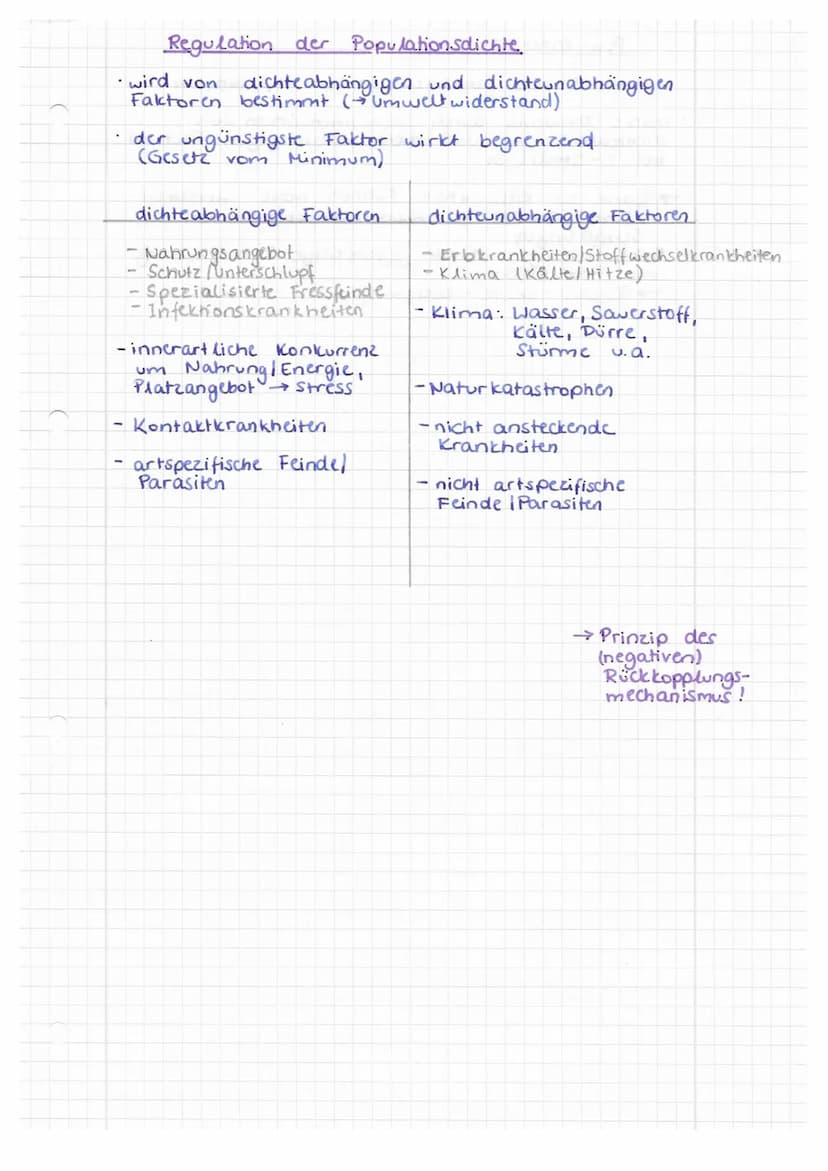 Regulation der Populationsdichte
· wird von dichteabhängigen und dichteunabhängigen
Faktoren bestimmt (→ Umweltwiderstand)
· der ungünstigste Faktor wirkt begrenzend
(Gesetz vom Minimum)
dichteabhängige Faktoren
- Nahrungsangebot
- Schutz/Unterschlupf
- Spezialisierte Fressfeinde
- Infektionskrankheiten
- innerartliche Konkurrenz
um Nahrung/Energie,
Platzangebot → Stress
- Kontaktkrankheiten
- artspezifische Feinde/
Parasiten
dichteunabhängige Faktoren
- Erbkrankheiten/Stoffwechselkrankheiten
- Klima (Kälte/Hitze)
- Klima: Wasser, Sauerstoff,
Kälte, Dürre,
Stürme u.a.
- Naturkatastrophen
- nicht ansteckende
Krankheiten
- nicht artspezifische
Feinde/Parasiten
→ Prinzip des
(negativen)
Rückkopplungs-
mechanismus!